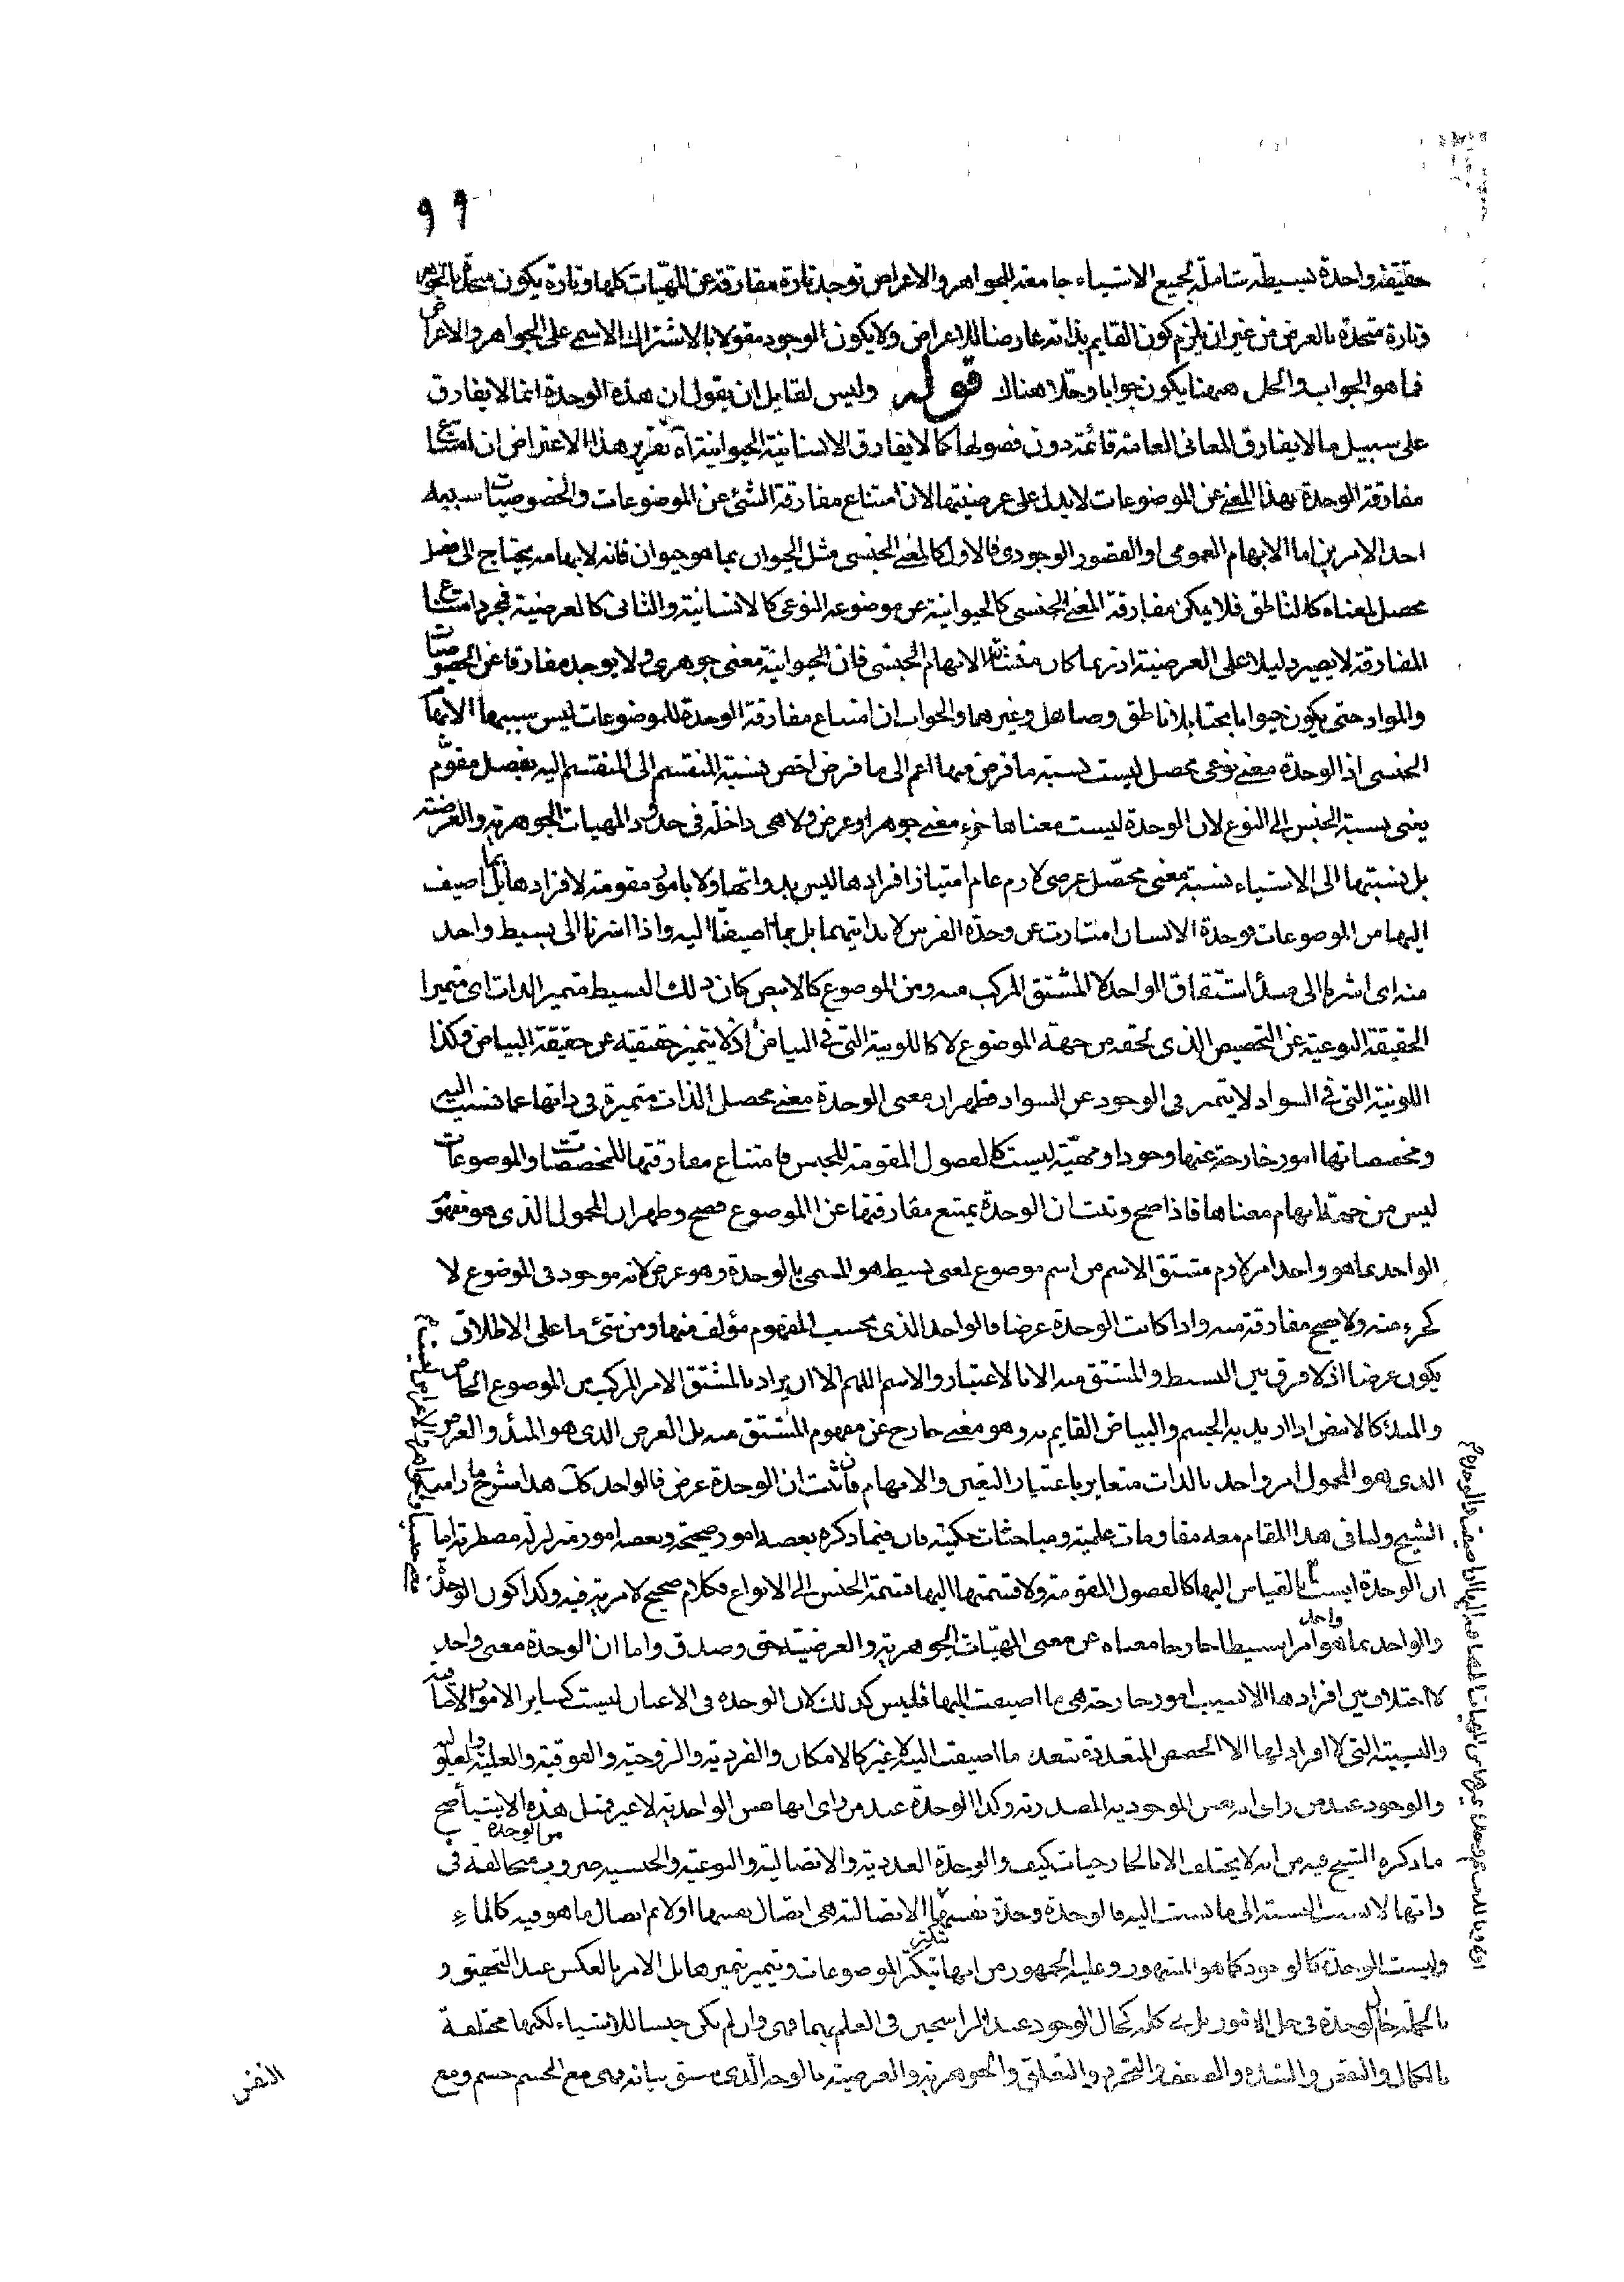 ٩٩
حقيقة واحدة بسيطة شاملة لجميع الاشياء جامعة للجواهر والاعراض توجد تارة مفارقة عن المهيات كلها وتارة يكون متحدة بالجواهر
وتارة متحدة بالعرض من غير ان يلزم كون القايم بذاته عارضا للاعراض ولا يكون الوجود مقولا بالاشتراك الاسمى على الجواهر والاعراض
فما هو الجواب والحل ههنا يكون جوابا وحلا هناك قوله وليس لقايل ان يقول ان هذه الوحدة انما لا يفارق
على سبيل ما لا يفارق المعانى العامة قائمة دون فصولها كما لا يفارق الانسانية الحيوانية آه تقرير هذا الاعتراض ان امتناع
مفارقة الوحدة بهذا المعنى عن الموضوعات لا يدل على عرضيتها لان امتناع مفارقة الشئ عن الموضوعات والخصوصيات سببه
احد الامرين اما الابهام العمومى او القصور الوجودى فالاول كالمعنى الجنسى مثل الحيوان بما هو حيوان فانه لابهامه يحتاج الى فصل
محصل لمعناه كالناطق فلا يمكن مفارقة المعنى الجنسى كالحيوانية عن موضوعه النوعى كالانسانية والثانى كالعرضية فمجرد امتناع
المفارقة لا يصير دليلا على العرضية اذ ربما كان منشاؤه الابهام الجنسى فان الحيوانية معنى جوهرى ولا يوجد مفارقا عن الخصوصيات
والمواد حتى يكون حيوانا بحتا بلا ناطق وصاهل وغيرهما والجواب ان امتناع مفارقة الوحدة للموضوعات ليس سببها الابهام
الجنسى اذ الوحدة معنى نوعى محصل ليست نسبة ما فرض فيها اعم الى ما فرض اخص نسبة المنقسم الى المنقسم اليه بفصل مقوم
يعنى نسبة الجنس الى النوع لان الوحدة ليست معناها جزء معنى جوهر او عرض ولا هى داخلة فى حدود المهيات الجوهرية والعرضية
بل نسبتها الى الاشياء نسبة معنى محصل عرضى لازم عام امتياز افرادها ليس بذواتها ولا بامور مقومة لافرادها بل بما اضيف
اليها من الموضوعات فوحدة الانسان امتازت عن وحدة الفرس لا بذاتيهما بل بما اضيفتا اليه واذا اشرنا الى بسيط واحد
منه اى اشرنا الى مبدأ اشتقاق الواحد لا المشتق المركب منه ومن الموضوع كالابيض كان ذلك البسيط متميز الذات اى متميزا
الحقيقة النوعية عن التخصيص الذى لحقه من جهة الموضوع لا كاللونية التى فى البياض اذ لا يتميز حقيقته عن حقيقة البياض وكذا
اللونية التى فى السواد لا يتميز فى الوجود عن السواد فظهر ان معنى الوحدة معنى محصل الذات متميزة فى ذاتها عما نسبت اليه
ومخصصاتها امور خارجة عنها وجودا ومهية ليست كالفصول المقومة للجنس فامتناع مفارقتها للمخصصات والموضوعات
ليس من جهة ابهام معناها فاذا صح وثبت ان الوحدة يمتنع مفارقتها عن الموضوع فصح وظهر ان المحمول الذى هو مفهوم
الواحد بما هو واحد امر لازم مشتق الاسم من اسم موضوع لمعنى بسيط هو المسمى بالوحدة وهو عرض لانه موجود فى الموضوع لا
كجزء منه ولا يصح مفارقته منه واذا كانت الوحدة عرضا فالواحد الذى بحسب المفهوم مؤلف منها ومن شئ ما على الاطلاق
يكون عرضا اذ لا فرق بين البسيط والمشتق منه الا بالاعتبار والاسم اللهم الا ان يراد بالمشتق الامر المركب من الموضوع الخاص
والمبدأ كالابيض اذا اريد به الجسم والبياض القايم به وهو معنى خارج عن مفهوم المشتق منه بل العرض الذى هو المبدأ والعرض
الذى هو المحمول امر واحد بالذات متغاير باعتبار التعين والابهام فان ثبت ان الوحدة عرض فالواحد كك هذا شرح ما رامه
الشيخ ولنا فى هذا المقام معه مقاومات علمية ومباحثات حكمية فان فيما ذكره بعضه امور صحيحة وبعضه امور متزلزلة مضطربة اما
ان الوحدة ليست بالقياس اليها كالفصول المقومة ولا قسمتها اليها قسمة الجنس الى الانواع فكلام صحيح لا مرية فيه وكذا كون الوحدة
والواحد بما هو واحد امرا بسيطا خارجا معناه عن معنى المهيات الجوهرية والعرضية حق وصدق واما ان الوحدة معنى واحد
لا اختلاف بين افرادها الا بسبب امور خارجة هى ما اضيفت اليها فليس كذلك لان الوحدة فى الاعيان ليست كساير الامور الاضافية
والنسبية التى لا افراد لها الا الحصص المتعددة بتعدد ما اضيفت اليه لا غير كالامكان والفردية والزوجية والفوقية والعلية والمعلولية
والوجود عند من راى انه نفس الموجودية المصدرية وكذا الوحدة عند من راى انها نفس الواحدية لا غير فمثل هذه الاشياء صح
ما ذكره الشيخ فيه من انه لا يختلف الا بالخارجيات كيف والوحدة العددية والاتصالية والنوعية والجنسية ضروب من الوحدة متخالفة فى
ذاتها لا بسبب النسبة الى ما نسبت اليه فالوحدة وحدة نفسها الاتصالية هى اتصال بنفسها اولا ثم اتصال ما هو فيه كالماء
وليست الوحدة كالوجود كما هو المشهور وعليه الجمهور من انها تتكثر بتكثر الموضوعات ويتميز بتميزها بل الامر بالعكس عند التحقيق و
بالجملة حال الوحدة فى هذه الامور كحال الوجود عند الراسخين فى العلم بهما فهى وان لم يكن جنسا للاشياء لكنها مختلفة
بالكمال والنقص والشدة والضعف والتجرد والتعلق والجوهرية والعرضية بالوجه الذى سبق بيانه فهى مع الجسم جسم ومع